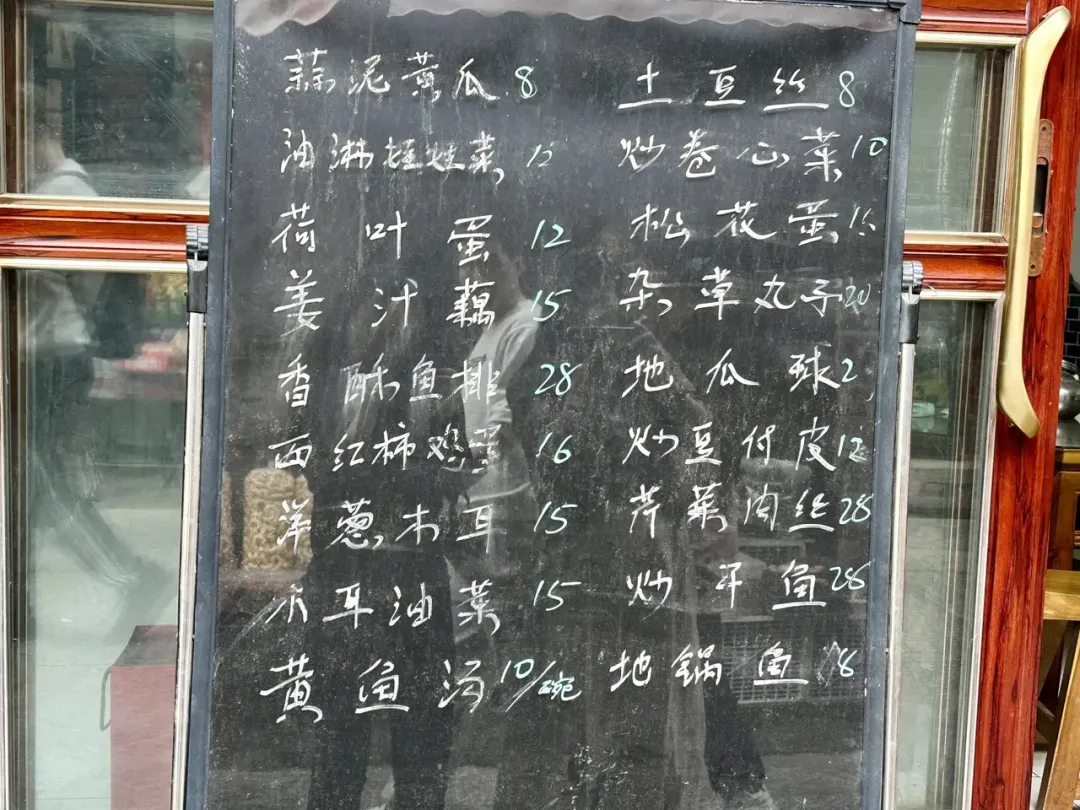 蒜泥黄瓜 8
油淋娃娃菜 12
荷叶蛋 12
姜汁藕 15
香酥鱼排 28
西红柿鸡蛋 16
洋葱木耳 15
木耳油菜 15
黄鱼汤 10/碗
土豆丝 8
炒卷心菜 10
松花蛋
杂草丸子 20
地瓜球 2
炒豆付皮 12
芹菜肉丝 28
炒干鱼 28
地锅鱼